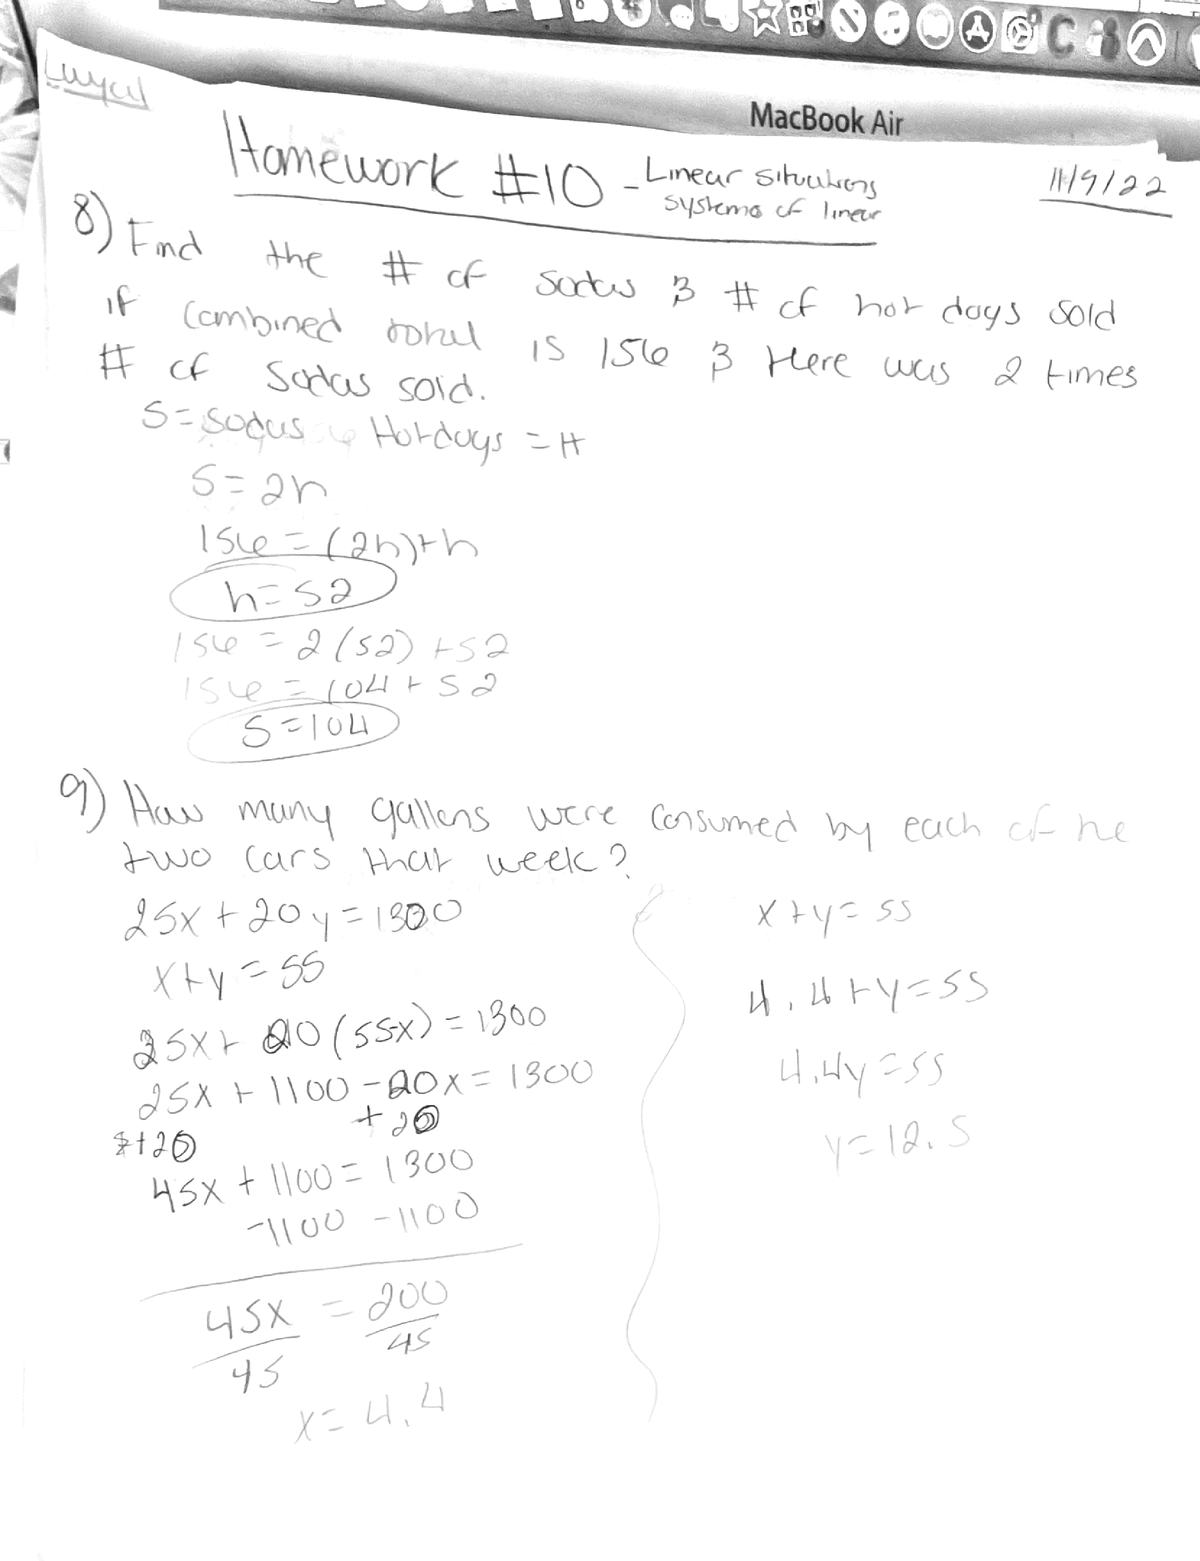 MacBook Air
Homework #10 - Linear situations
systems of linear
11/9/22
8) Find the # of sodas & # of hot dogs sold
if combined total is 156 & there was 2 times
# of sodas sold.
S = sodas Hotdogs = H
S = 2h
156 = (2h)+h
h = 52
156 = 2(52) +52
156 = 104 + 52
S = 104
9) How many gallons were consumed by each of he
two cars that week?
25x + 20y = 1300
x+y = 55
25x + 20(55-x) = 1300
25x + 1100 - 20x = 1300
+20 +20
45x + 1100 = 1300
-1100 -1100
45x = 200
45 45
x = 4.4
x+y = 55
4.4+y=55
4.4y = 55
y = 12.5